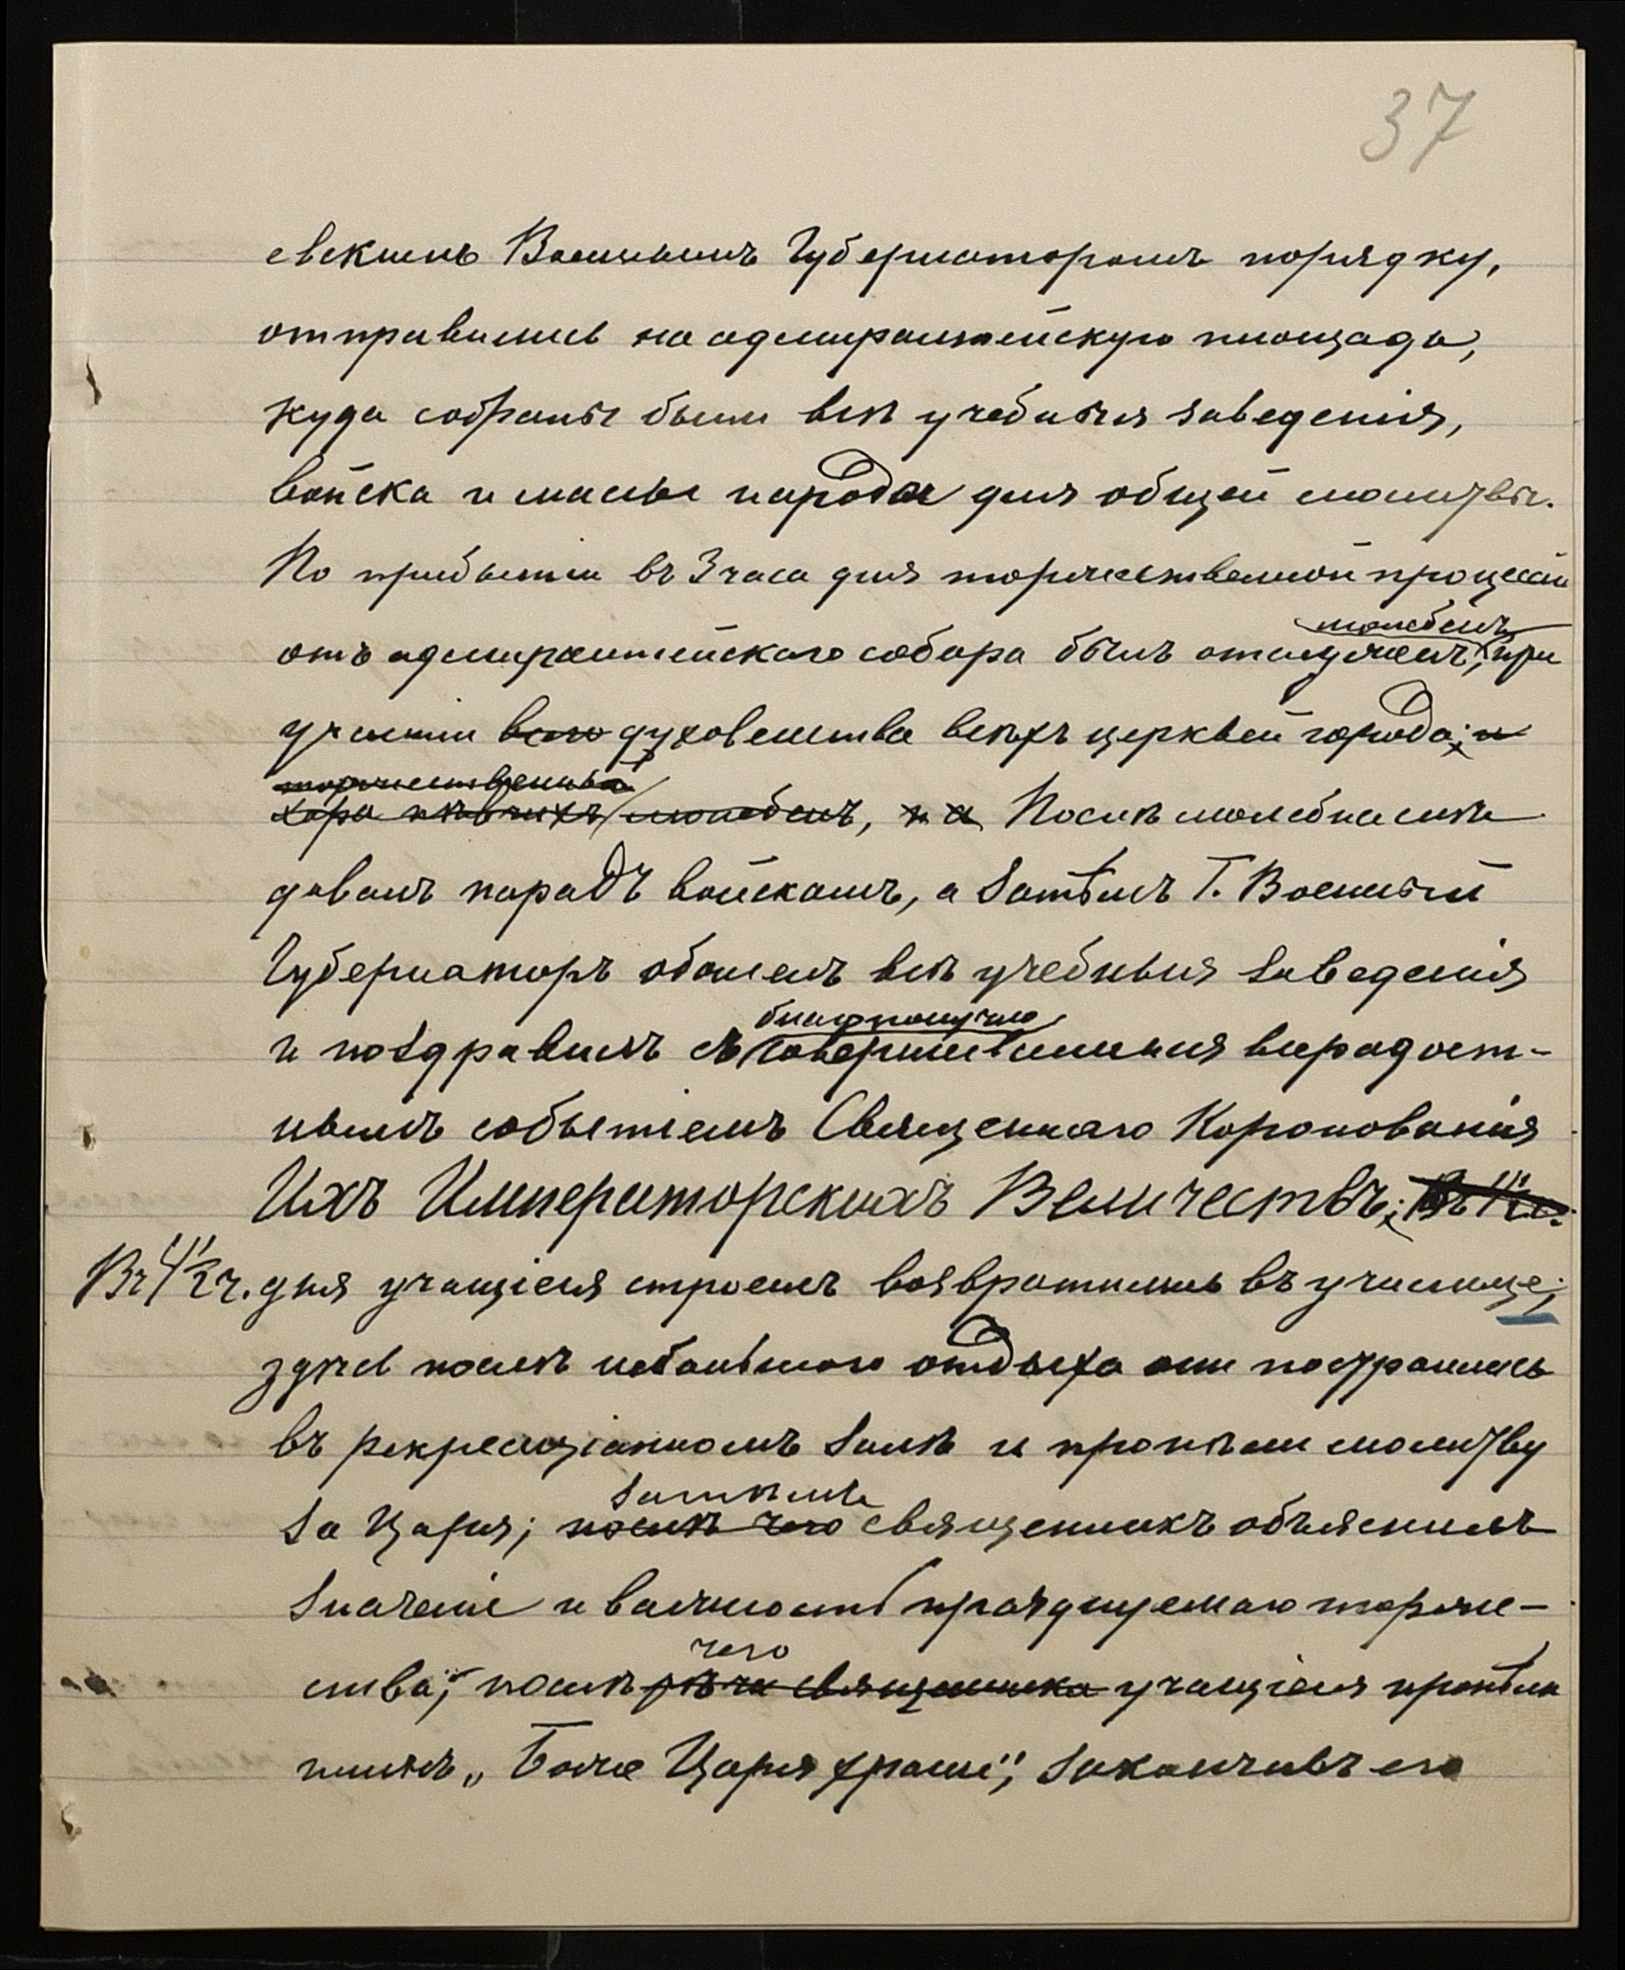 37
евскимъ Военнымъ Губернаторомъ порядку,
отправились на адмиралтейскую площадь,
куда собраны были всѣ учебныя заведенія,
войска и массы народа для общей молитвы.
По прибытіи въ 3 часа дня торжественной процессіи
молебенъ
отъ адмиралтейскаго собора былъ отслуженъ, при
участіи всего духовенства всѣхъ церквей города; и
торжественный
хора пѣвчихъ молебенъ, на Послѣ молебна былъ
данъ парадъ войскамъ, а затѣмъ Г. Военный
Губернаторъ обошелъ всѣ учебныя заведенія
благополучно
и поздравилъ съ совершившимся всерадост-
нымъ событіемъ Священнаго Коронованія
Ихъ Императорскихъ Величествъ; Въ 4½ ч.
Въ 4½ ч. дня учащіеся строемъ возвратились въ училище;
здѣсь послѣ небольшого отдыха они построились
въ рекреаціонномъ залѣ и пропѣли молитву
затѣмъ
за Царя; послѣ чего священникъ объяснилъ
значеніе и важность празднуемаго торже-
чего
ства; послѣ рѣчи священника учащіеся пропѣли
гимнъ „Боже Царя храни", закончивъ его